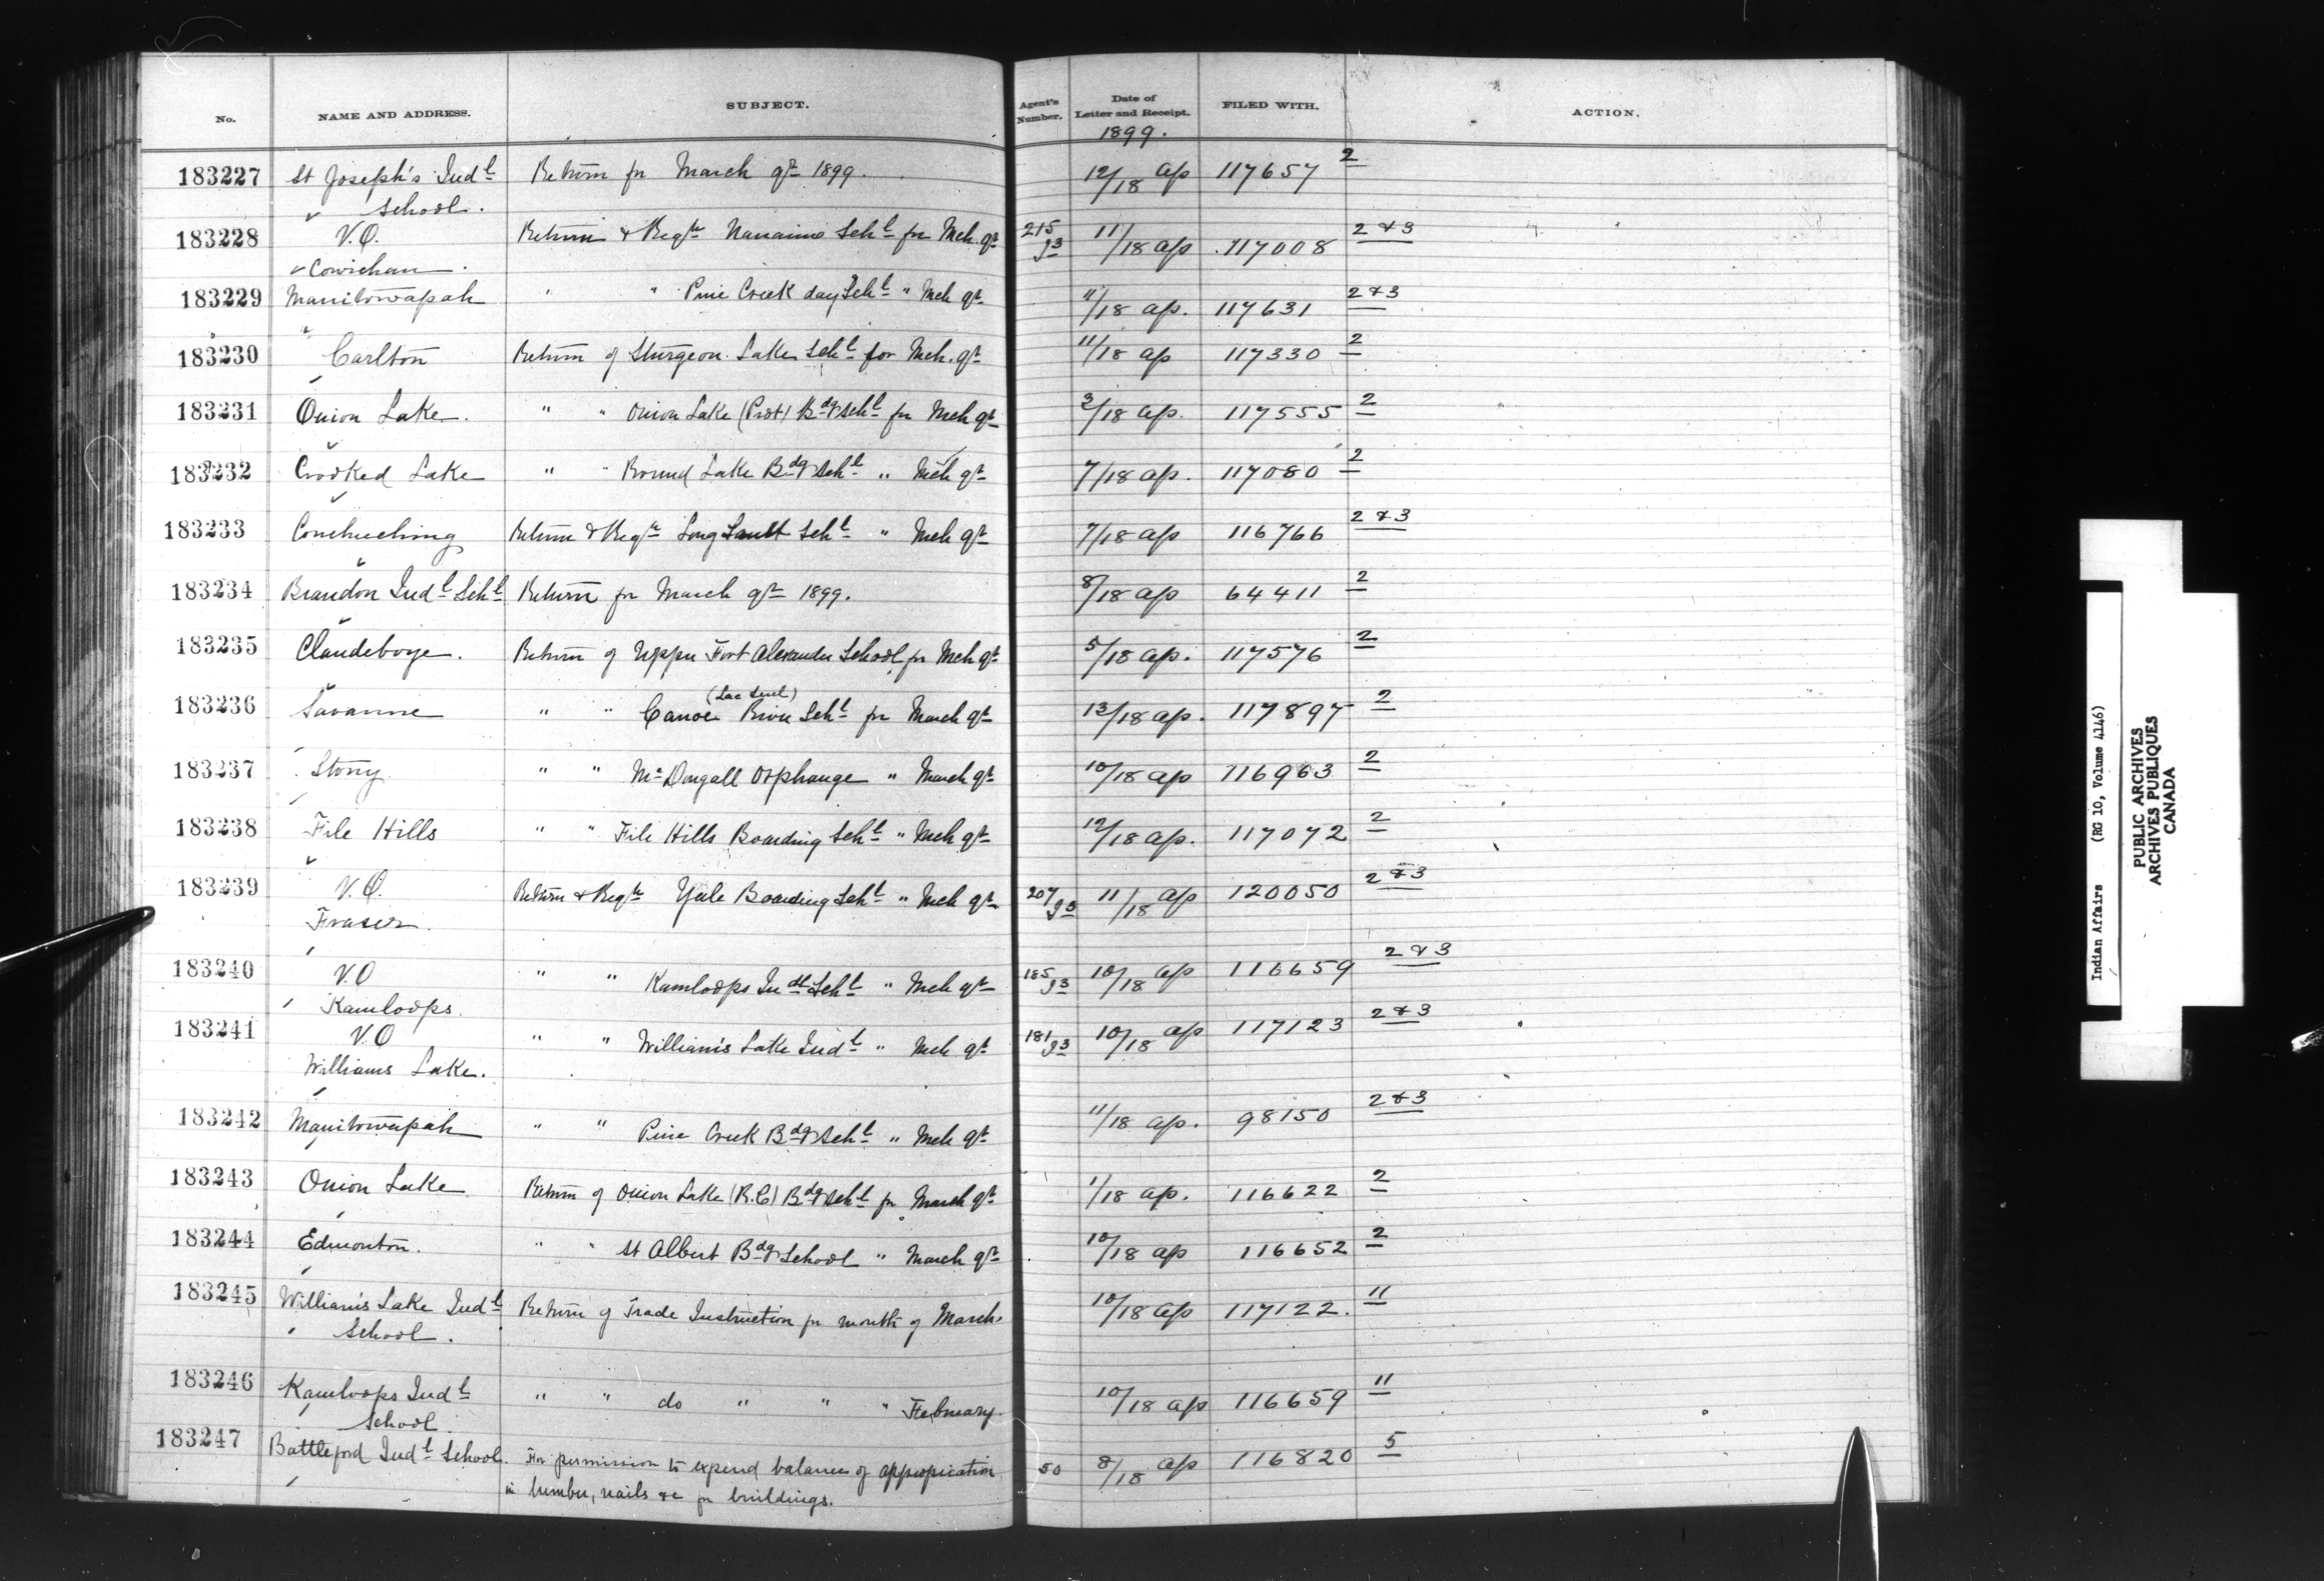 No. NAME AND ADDRESS. SUBJECT. Agent's Number. Date of Letter and Receipt. FILED WITH. ACTION.
1899.
183227 St Joseph's Indl Return for March qr 1899. 12/18 ap 117657 2
School.
183228 V.O. Return & Regr Nanaimo Schl for Mch. qr 215 11/18 ap 117008 2 & 3
Cowichan.
183229 Manitowapah " " Pine Creek day Schl " Mch qr 11/18 ap. 117631 2 & 3
183230 Carlton Return of Sturgeon Lake Schl for Mch. qr 11/18 ap 117330 2
183231 Onion Lake. " " Onion Lake (Prot) Bdg Schl for Mch qr 3/18 ap. 117555 2
183232 Crooked Lake " " Round Lake Bdg Schl " Mch qr 7/18 ap. 117080 2
183233 Couchiching Return & Regr Long Sault Schl " Mch qr 7/18 ap 116766 2 & 3
183234 Brandon Indl Schl Return for March qr 1899. 8/18 ap 64411 2
183235 Clandeboye. Return of Upper Fort Alexander School for Mch qr 5/18 ap. 117576 2
(Lac Seul)
183236 Savanne " " Canoe River Schl for March qr 13/18 ap. 117897 2
183237 Stony " " McDougall Orphanage " March qr 10/18 ap 116963 2
183238 File Hills " " File Hills Boarding Schl " Mch qr 12/18 ap. 117072 2
183239 V.O. Return & Regr Yale Boarding Schl " Mch qr 207 11/18 ap 120050 2 & 3
Fraser.
183240 V.O " " Kamloops Indl Schl " Mch qr 185 10/18 ap 116659 2 & 3
Kamloops.
183241 V.O " " William's Lake Indl " Mch qr 181 10/18 ap 117123 2 & 3
Williams Lake.
183242 Manitowapah " " Pine Creek Bdg Schl " Mch qr 11/18 ap. 98150 2 & 3
183243 Onion Lake Return of Onion Lake (R.C) Bdg Schl for March qr 1/18 ap. 116622 2
183244 Edmonton. " " St Albert Bdg School " March qr 10/18 ap 116652 2
183245 William's Lake Indl Return of Trade Instruction for month of March. 10/18 ap 117122. 11
School.
183246 Kamloops Indl " " do " " " February. 10/18 ap 116659 11
School.
183247 Battleford Indl School. For permission to expend balance of appropriation 50 8/18 ap 116820 5
in lumber, nails &c for buildings.
Indian Affairs (RG 10, Volume 4146)
PUBLIC ARCHIVES
ARCHIVES PUBLIQUES
CANADA